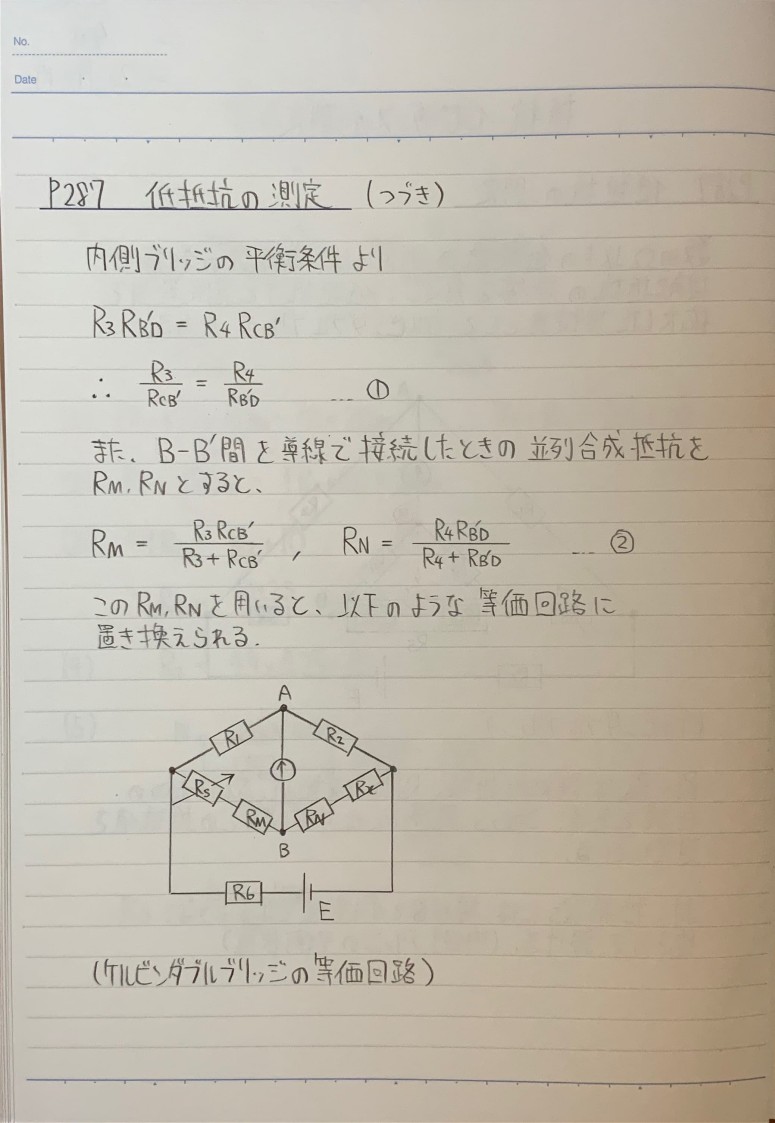 No.
Date
P287 低抵抗の測定 (つづき)
内側ブリッジの平衡条件より
R3 RB'D = R4 RCB'
∴ R3/RCB' = R4/RB'D ... ①
また、B-B'間を導線で接続したときの並列合成抵抗を
RM, RNとすると、
RM = R3 RCB'/R3 + RCB' , RN = R4 RB'D/R4 + RB'D ... ②
このRM, RNを用いると、以下のような等価回路に
置き換えられる.
A
R1
R2
Rs
Rx
RM
RN
B
R6
E
(ケルビンダブルブリッジの等価回路)